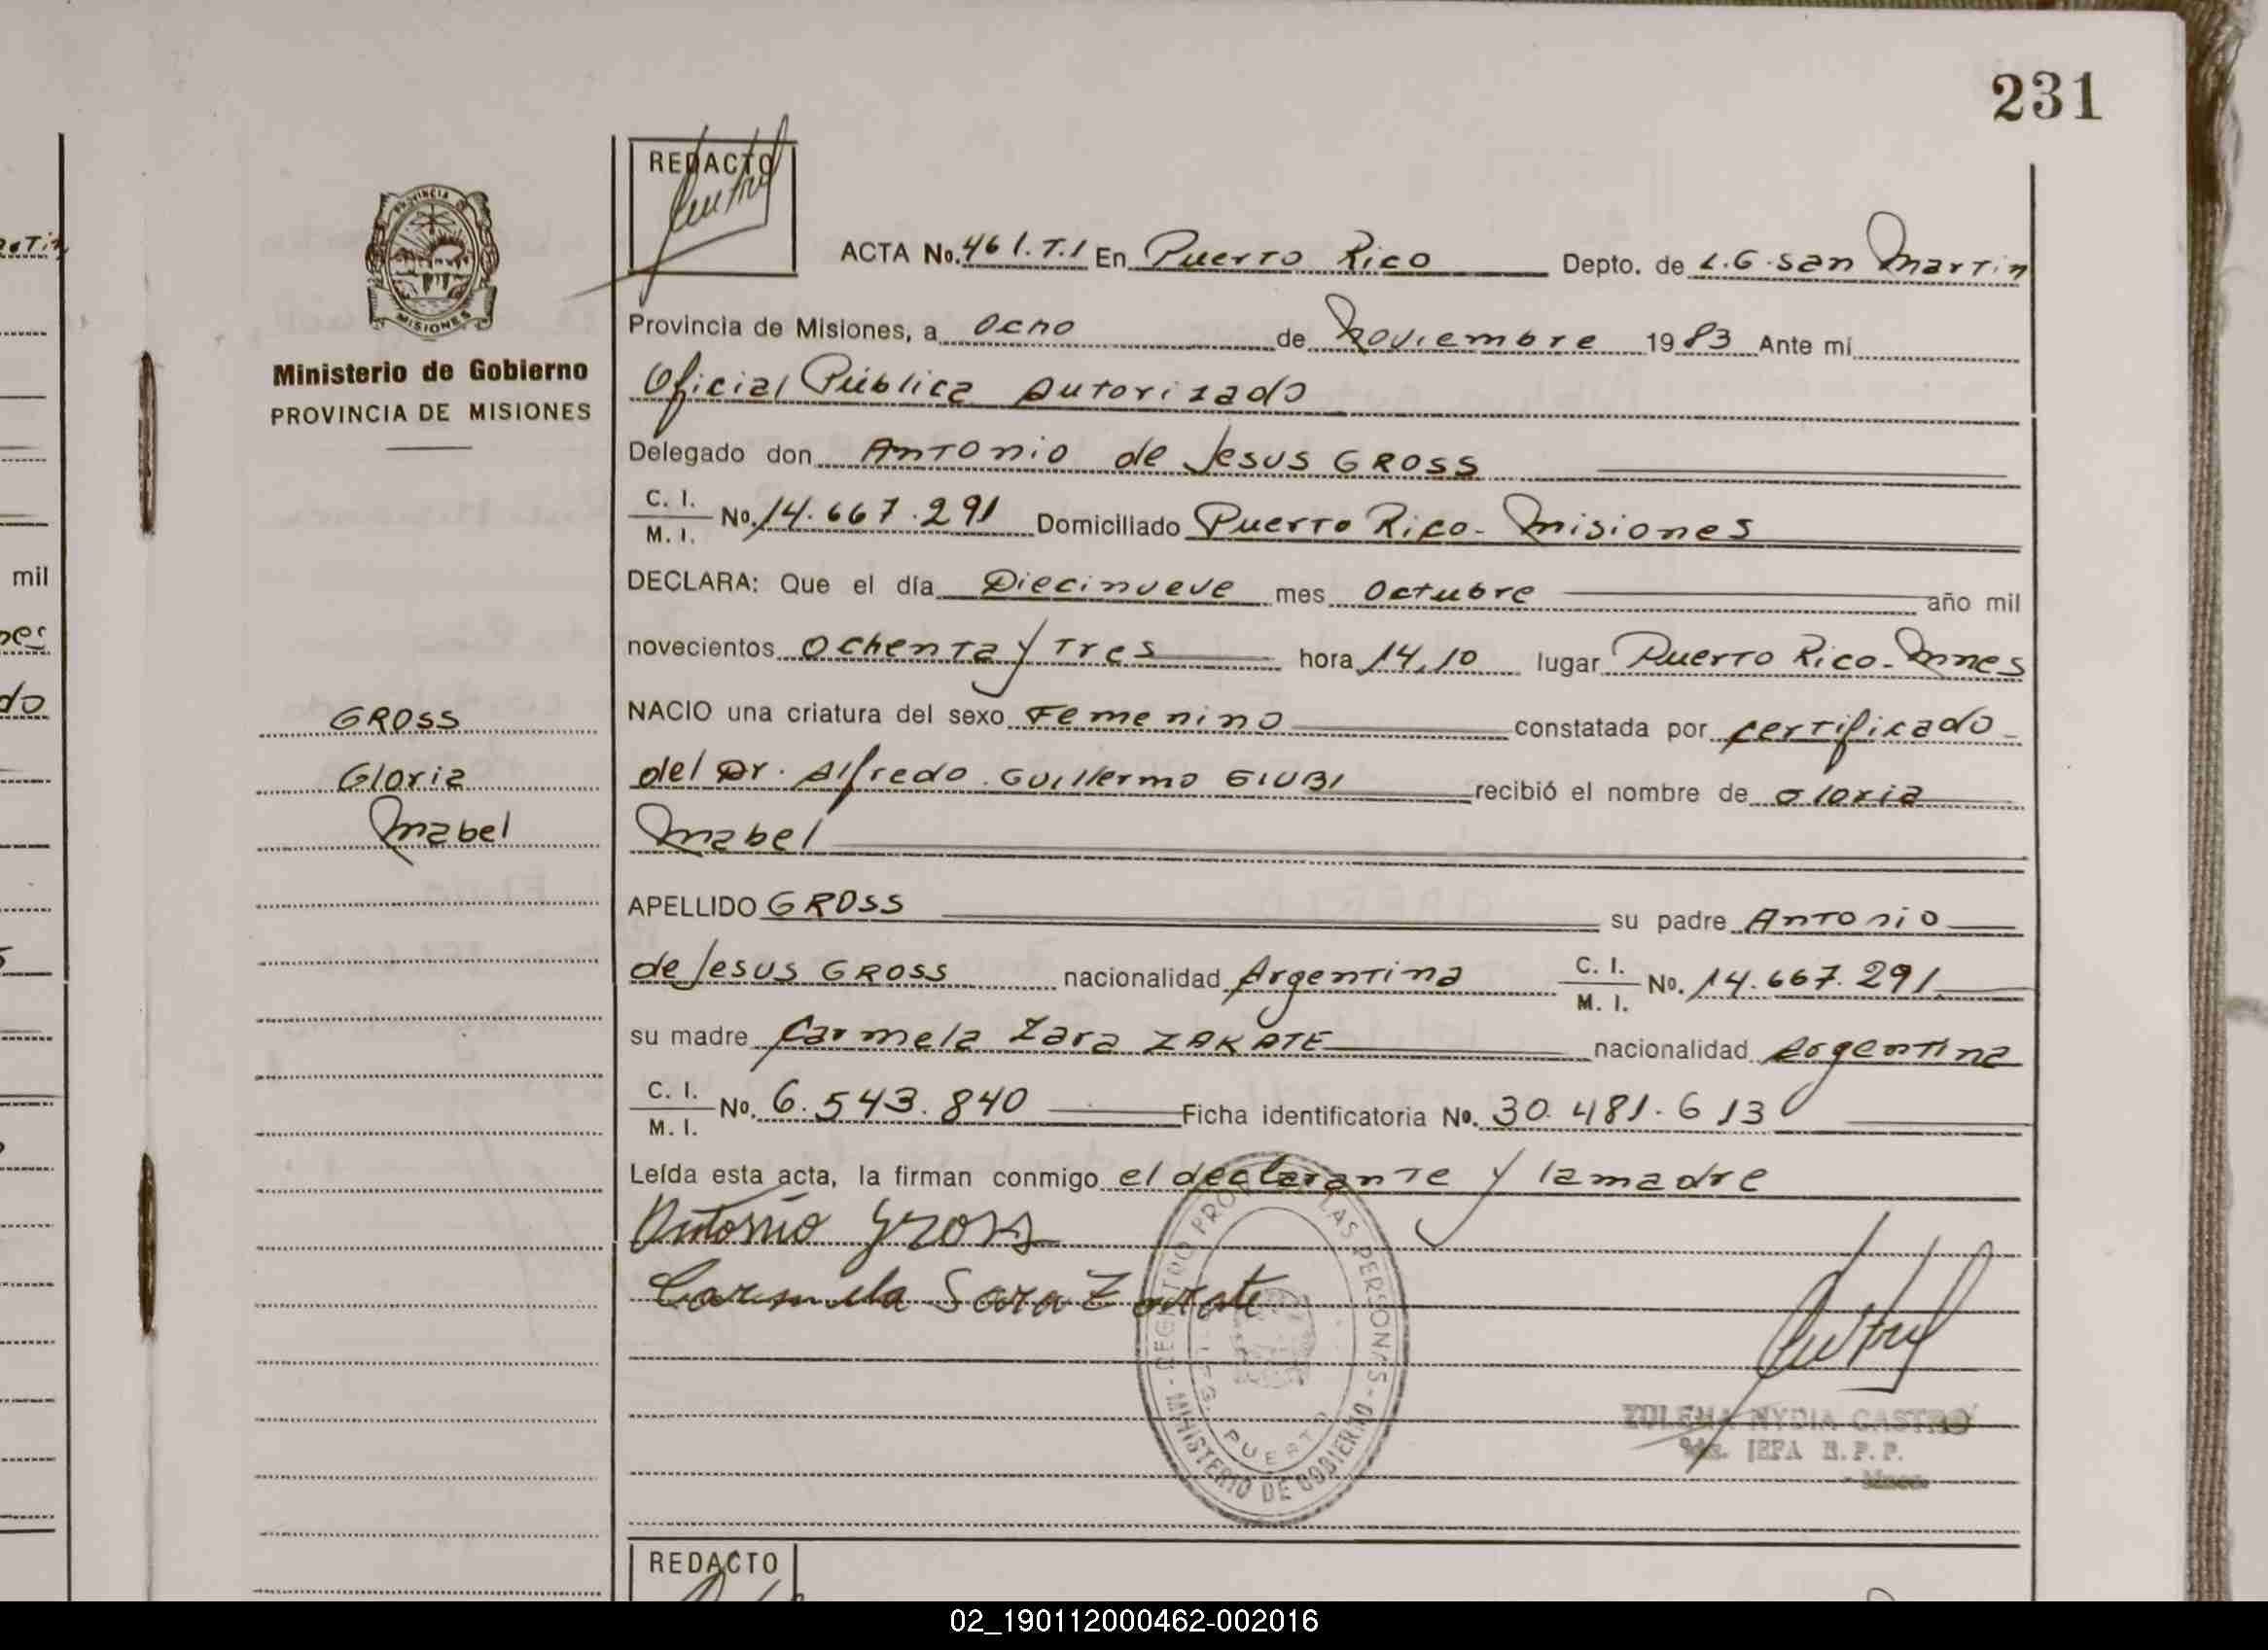 231
REDACTO
ACTA No. 461.T.I En Puerto Rico Depto. de L.G. San Martin
Provincia de Misiones, a Ocho de Noviembre 1983 Ante mí
Oficial Público Autorizado
Delegado don Antonio de Jesus GROSS
C. I.
M. I.
No. 14.667.291 Domiciliado Puerto Rico - Misiones
DECLARA: Que el día Diecinueve mes Octubre año mil
novecientos Ochenta y Tres hora 14,10 lugar Puerto Rico - Mnes
NACIO una criatura del sexo Femenino constatada por certificado
del Dr. Alfredo Guillermo GIUBI recibió el nombre de Gloria
Mabel
APELLIDO GROSS su padre Antonio
de Jesus GROSS nacionalidad Argentina C. I. M. I. No. 14.667.291
su madre Carmela Zara ZARATE nacionalidad Argentina
C. I.
M. I.
No. 6.543.840 Ficha identificatoria No. 30.481.613
Leída esta acta, la firman conmigo el declarante y la madre
Antonio Gross
Carmela Sara Zarate
ZULEMA NYDIA CASTRO
JEFA R.P.P.
REGISTRO PROV LAS PERSONAS - MINISTERIO DE GOBIERNO -
PUERTO
REDACTO
PROVINCIA
MISIONES
Ministerio de Gobierno
PROVINCIA DE MISIONES
GROSS
Gloria
Mabel
mil
do
02_190112000462-002016